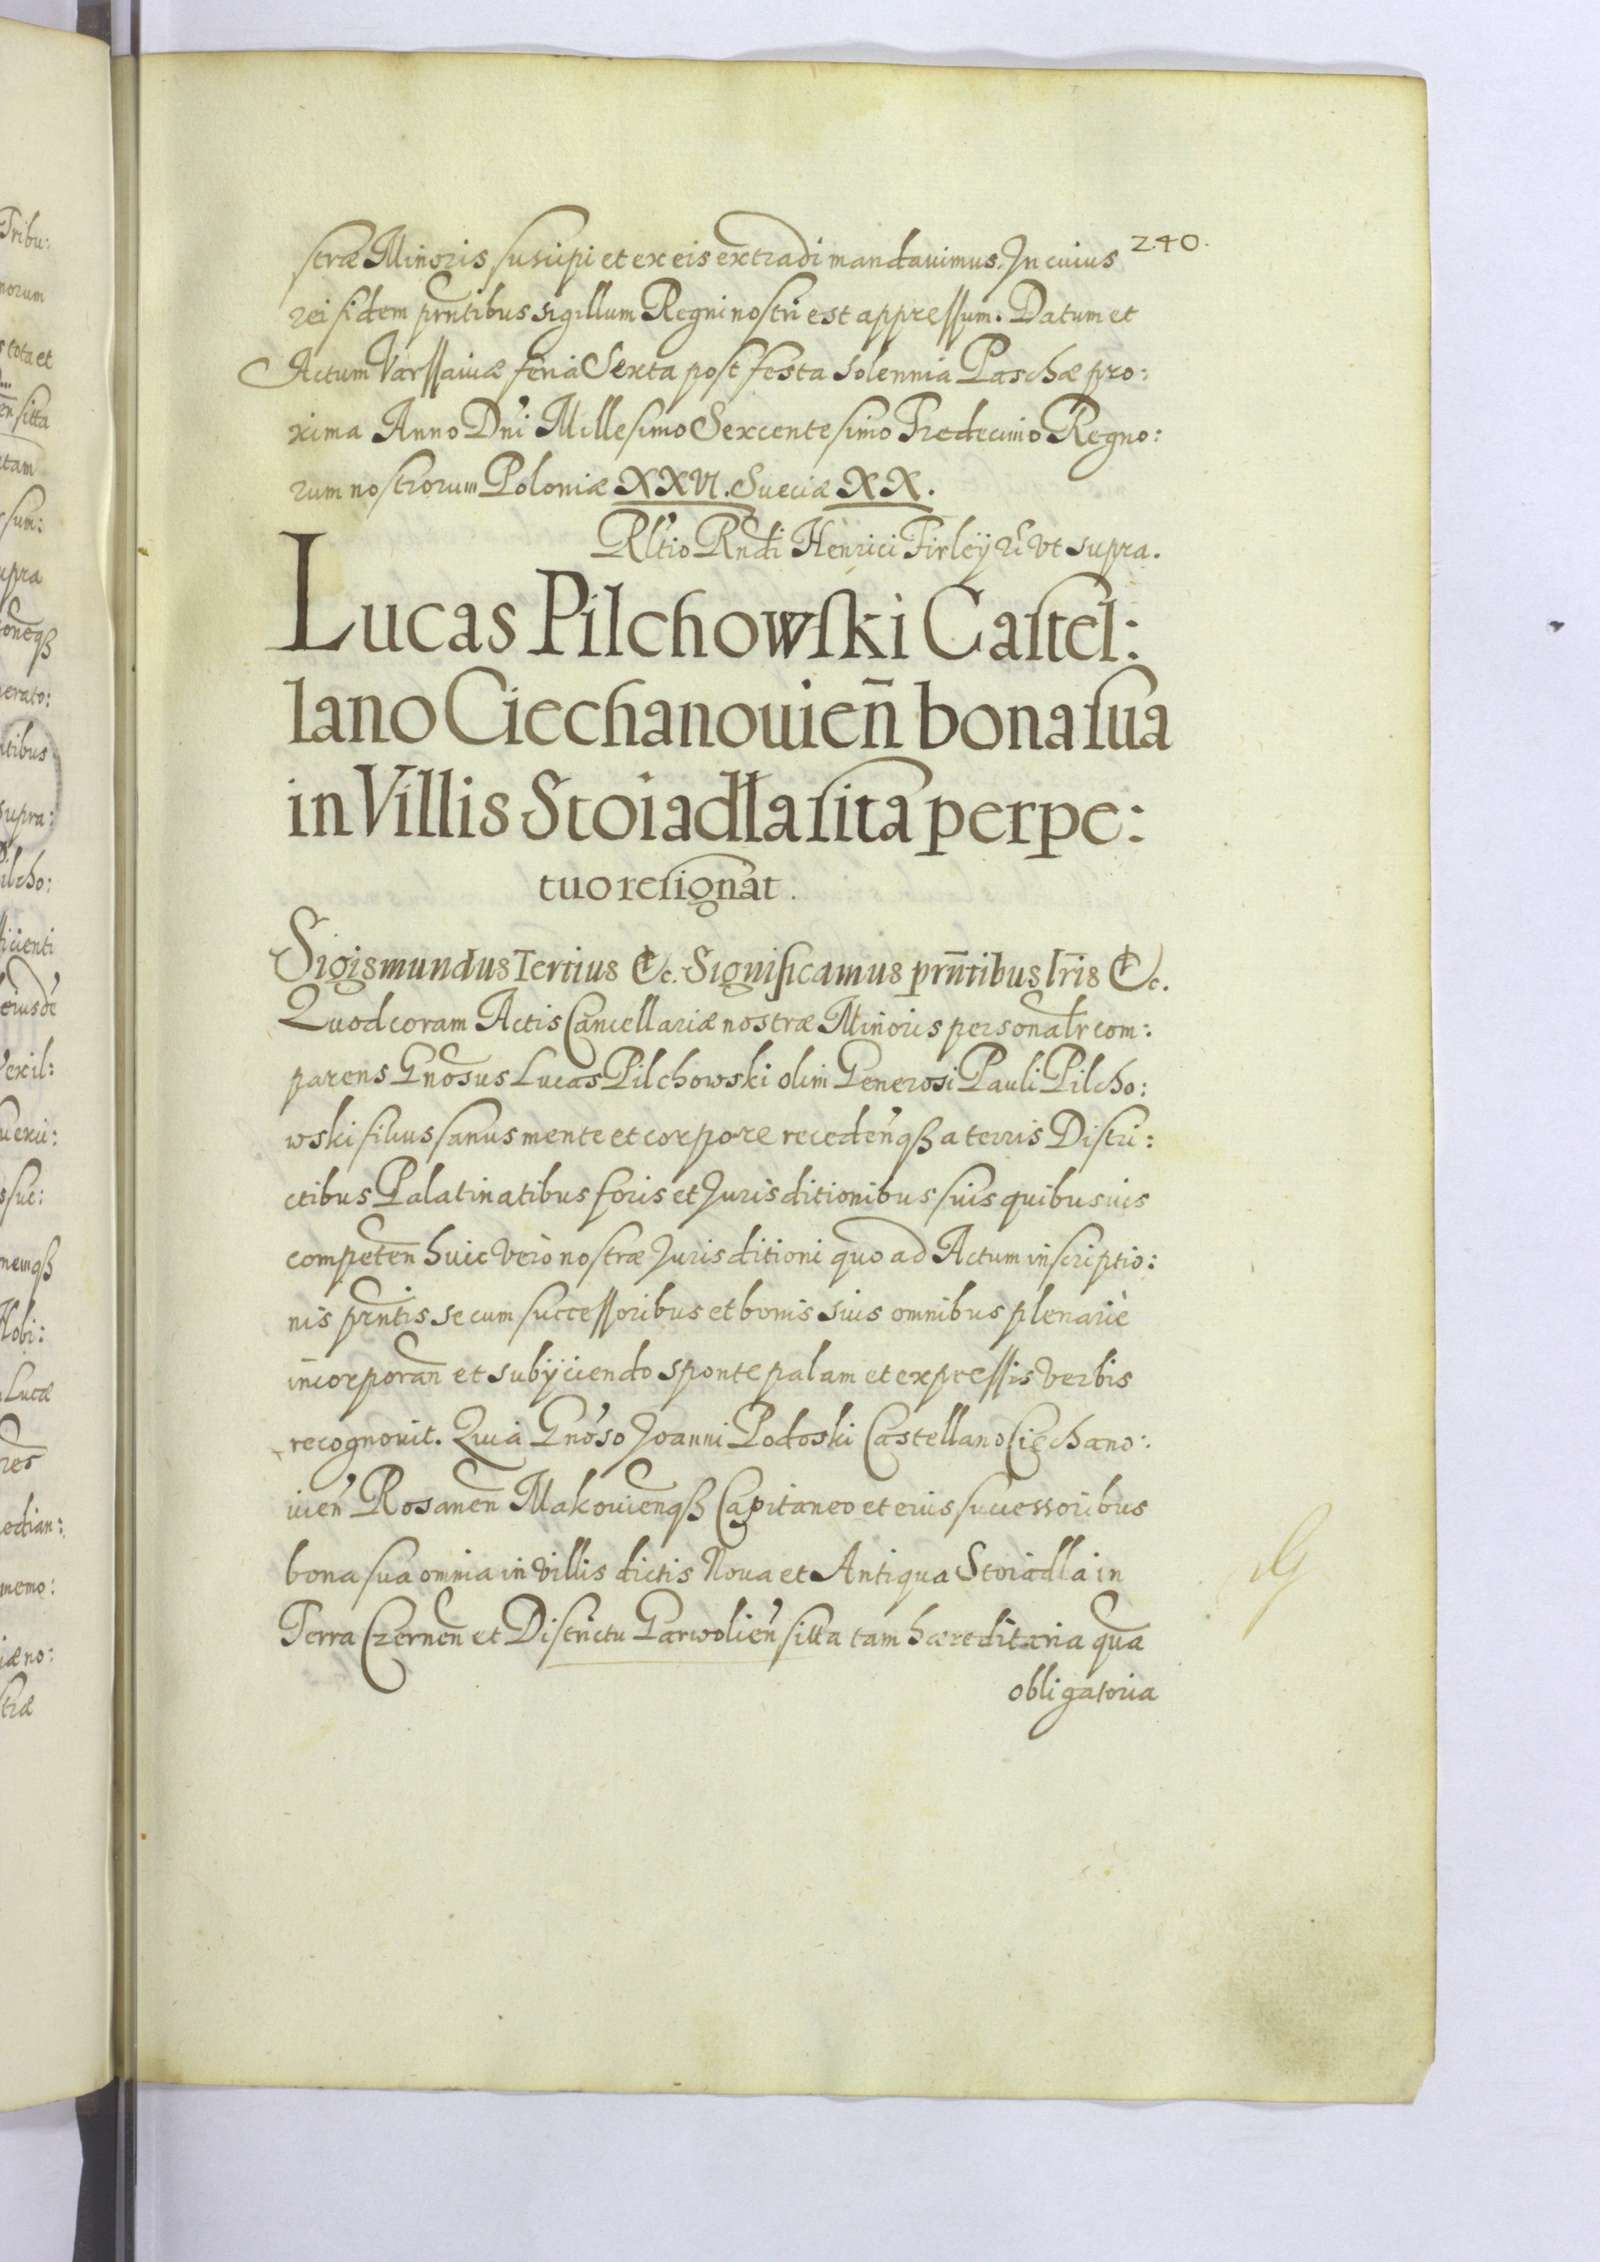 240.
stræ Minoris suscipi et ex eis extradi mandauimus. In cuius
rei fidem prñtibus sigillum Regni nostri est appressum. Datum et
Actum Varssauiæ feria Sexta post festa solennia Paschæ pro:
xima Anno Dñi Millesimo Sexcentesimo Tredecimo Regno:
rum nostrorum Poloniæ XXVI. Sueciæ XX.
Rltio Rndi Henrici Firleÿ Rñ vt supra.
Lucas Pilchowski Castel:
lano Ciechanouieñ bona sua
in Villis Stoiadła sita perpe:
tuo resignat.
Sigismundus Tertius &c. Significamus prñtibus lris &c.
Quod coram Actis Cancellariæ nostræ Minoris personalr com:
parens Gnosus Lucas Pilchowski olim Generosi Pauli Pilcho:
wski filius sanus mente et corpore recedeñqß a terris Distri:
ctibus Palatinatibus foris et Jurisditionibus suis quibusuis
competeñ huic verò nostræ Jurisditioni quo ad Actum inscriptio:
nis prñtis se cum successoribus et bonis suis omnibus plenariè
incorporañ et subÿciendo sponte palam et expressis verbis
recognouit. Quia Gnoso Joanni Podoski Castellano Ciechano:
uieñ Rosaneñ Makouieñqß Capitaneo et eius successoribus
bona sua omnia in villis dictis Noua et Antiqua Stoiadla in
Terra Czerneñ et Districtu Garwolieñ sitta tam hæreditaria qua
obligatoria